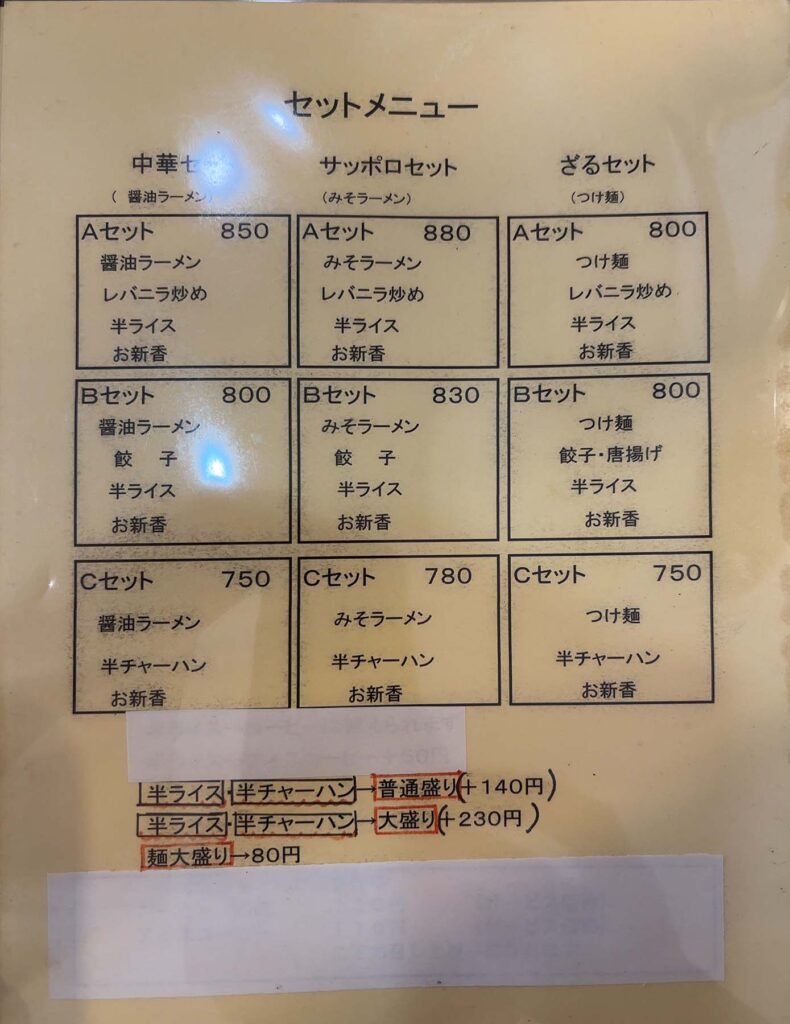 セットメニュー
中華セ
サッポロセット
ざるセット
(醤油ラーメン)
(みそラーメン)
(つけ麺)
Aセット 850
醤油ラーメン
レバニラ炒め
半ライス
お新香
Aセット 880
みそラーメン
レバニラ炒め
半ライス
お新香
Aセット 800
つけ麺
レバニラ炒め
半ライス
お新香
Bセット 800
醤油ラーメン
餃 子
半ライス
お新香
Bセット 830
みそラーメン
餃 子
半ライス
お新香
Bセット 800
つけ麺
餃子・唐揚げ
半ライス
お新香
Cセット 750
醤油ラーメン
半チャーハン
お新香
Cセット 780
みそラーメン
半チャーハン
お新香
Cセット 750
つけ麺
半チャーハン
お新香
半ライス・半チャーハン→普通盛り(+140円)
半ライス・半チャーハン→大盛り(+230円)
麺大盛り→80円